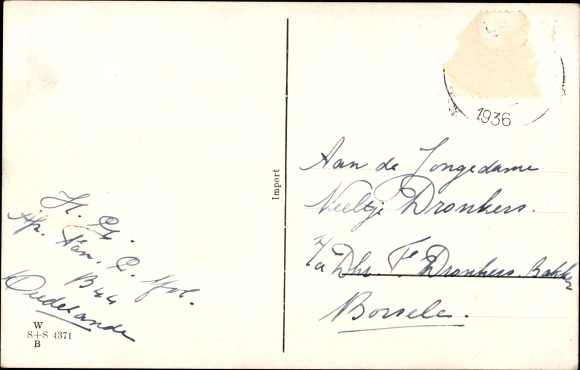 1936
Import
Aan de Jongedame
Neeltje Dronkers.
p/a Dhr. Fr Dronkers. Bakker
Borsele.
H.
Afz.
B44
Oudelande
W
S+S 4371
B